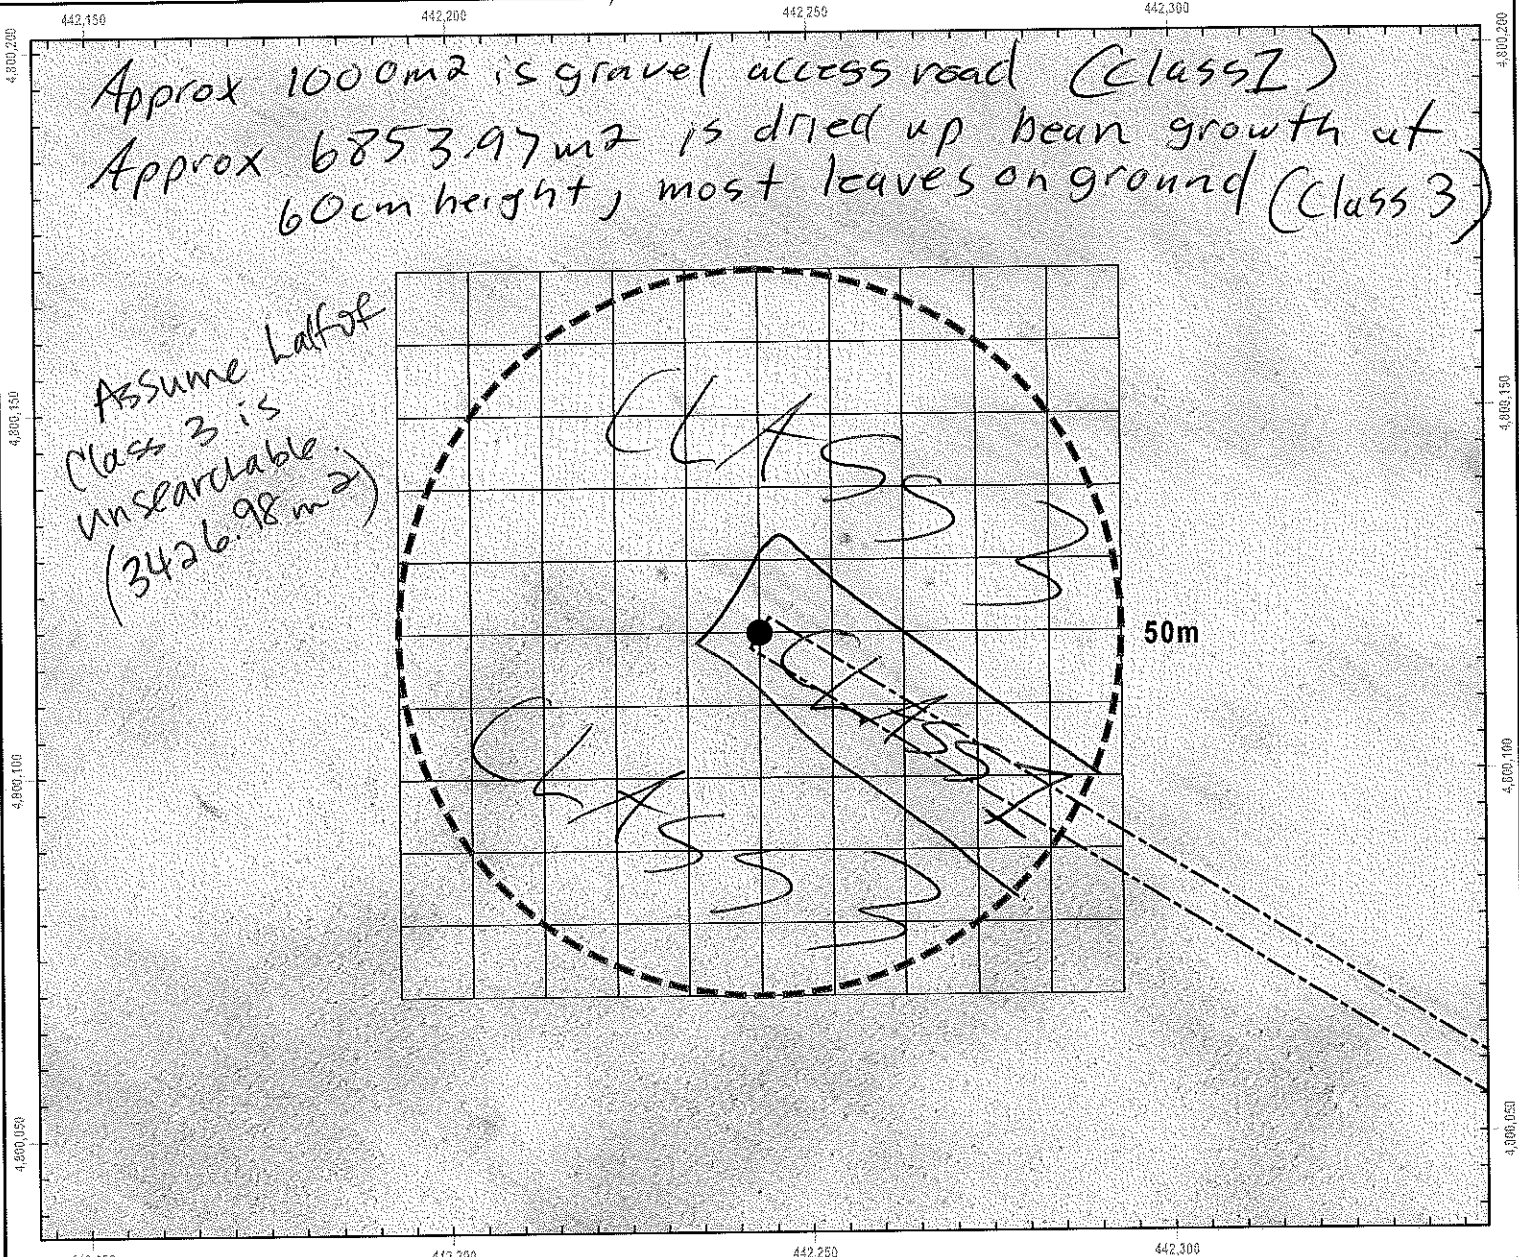 442,150 442,200 442,250 442,300
4,800,200 4,800,200
Approx 1000m2 is gravel access road (Class 1)
Approx 6853.97m2 is dried up bean growth at
60cm height, most leaves on ground (Class 3)
Assume half of
Class 3 is
unsearchable.
(3426.98m2)
4,800,150 4,800,150
CLASS 3
50m
CLASS 1
CLASS 3
4,800,100 4,800,100
4,800,050 4,800,050
442,250 442,300